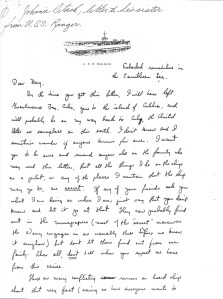 Johnnie Colach, letter to his sister
from U.S.S. Ranger
U.S.S. RANGER
Embarked somewhere in
the Caribbean Sea.
Dear Mary,
By the time you get this letter, I will have left
Guantanamo Bay, Cuba, gone to the island of Culebra, and
will probably be on my way back to the United
States or someplace on this earth I don't know and I
sometimes wonder if anyone knows for sure. I want
you to be sure and remind anyone else in the family who
may read this letter, that all the things I do on the ship
as a pilot, or any of the places I mention that the ship
may go to, are secret. If any of your friends ask you
what I am doing or where I am just say that you don't
know and let it go at that. They can probably find
out in the newspapers (most of the "secret" maneuvers
the Navy engages in are usually these before we know
it anyhow) but don't let them find out from our
family. Above all, don't tell when you expect me home
from this cruise.
There are many conflicting rumors on board ship
about that very fact (seeing as how everyone wants to